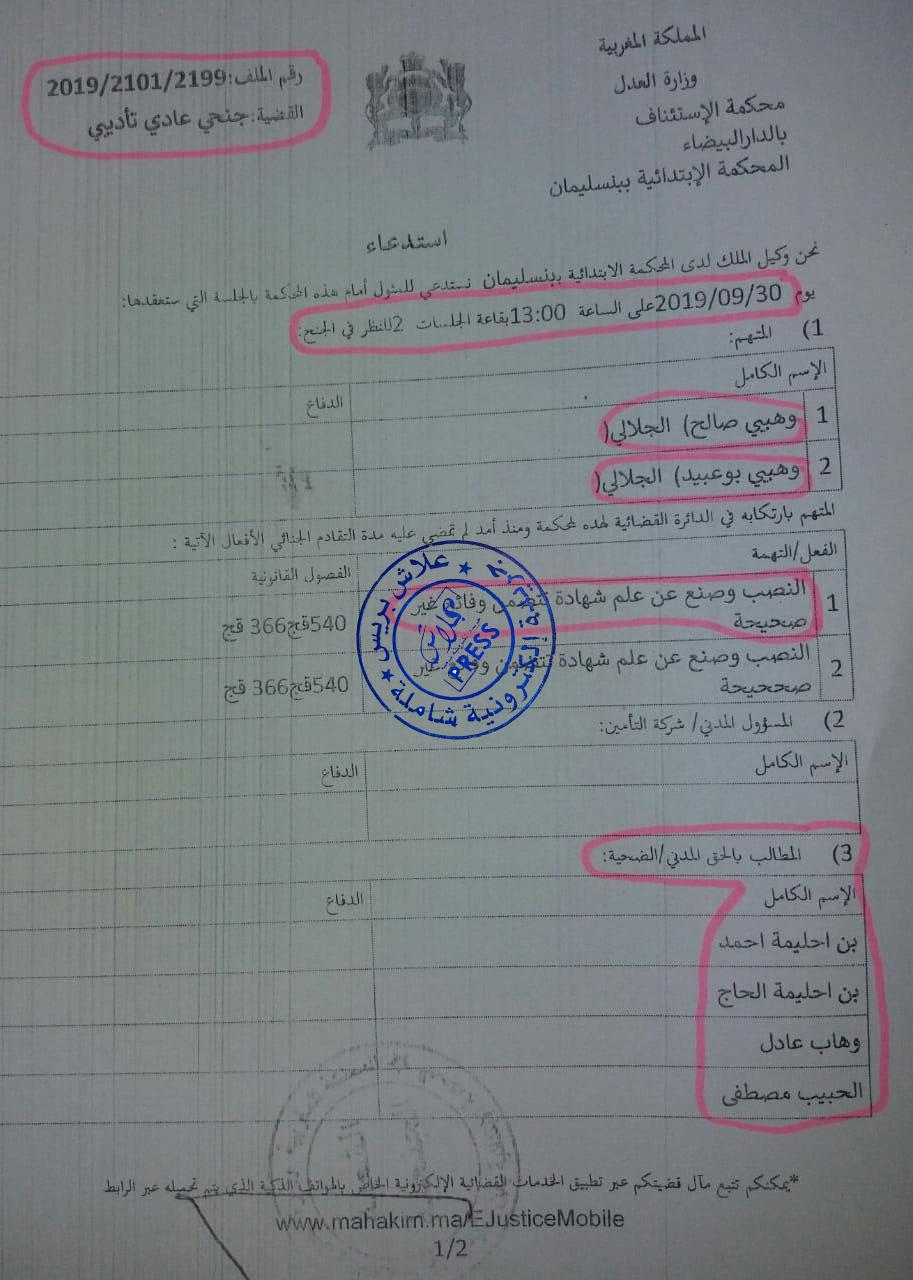 المملكة المغربية
وزارة العدل
محكمة الإستئناف
بالدارالبيضاء
المحكمة الإبتدائية ببنسليمان
رقم الملف:2019/2101/2199
القضية:جنحي عادي تأديبي
استدعاء
نحن وكيل الملك لدى المحكمة الابتدائية ببنسليمان نستدعي للمثول أمام هذه المحكمة بالجلسة التي ستعقدها:
يوم 2019/09/30على الساعة 13:00بقاعة الجلسات 2للنظر في الجنح:
1) المتهم:
الإسم الكامل الدفاع
1 وهبي صالح) الجلالي(
2 وهيبي بوعبيد) الجلالي(
المتهم بارتكابه في الدائرة القضائية لهذه المحكمة ومنذ أمد لم تمضي عليه مدة التقادم الجنائي الأفعال الآتية :
الفعل/التهمة الفصول القانونية
1 النصب وصنع عن علم شهادة تتضمن وقائع غير
صحيحة 540قج366 قج
2 النصب وصنع عن علم شهادة تتضمن وقائع غير
صححيحة 540قج366 قج
علاش بريس
جريدة إلكترونية شاملة
علاش
PRESS
2) المسؤول المدني/ شركة التأمين:
الإسم الكامل الدفاع
3) المطالب بالحق المدني/الضحية:
الإسم الكامل الدفاع
بن احليمة احمد
بن احليمة الحاج
وهاب عادل
الحبيب مصطفى
*يمكنكم تتبع مآل قضيتكم عبر تطبيق الخدمات القضائية الإلكترونية الخاص بالهواتف الذكية الذي يتم تحميله عبر الرابط
www.mahakim.ma/EJusticeMobile
1/2